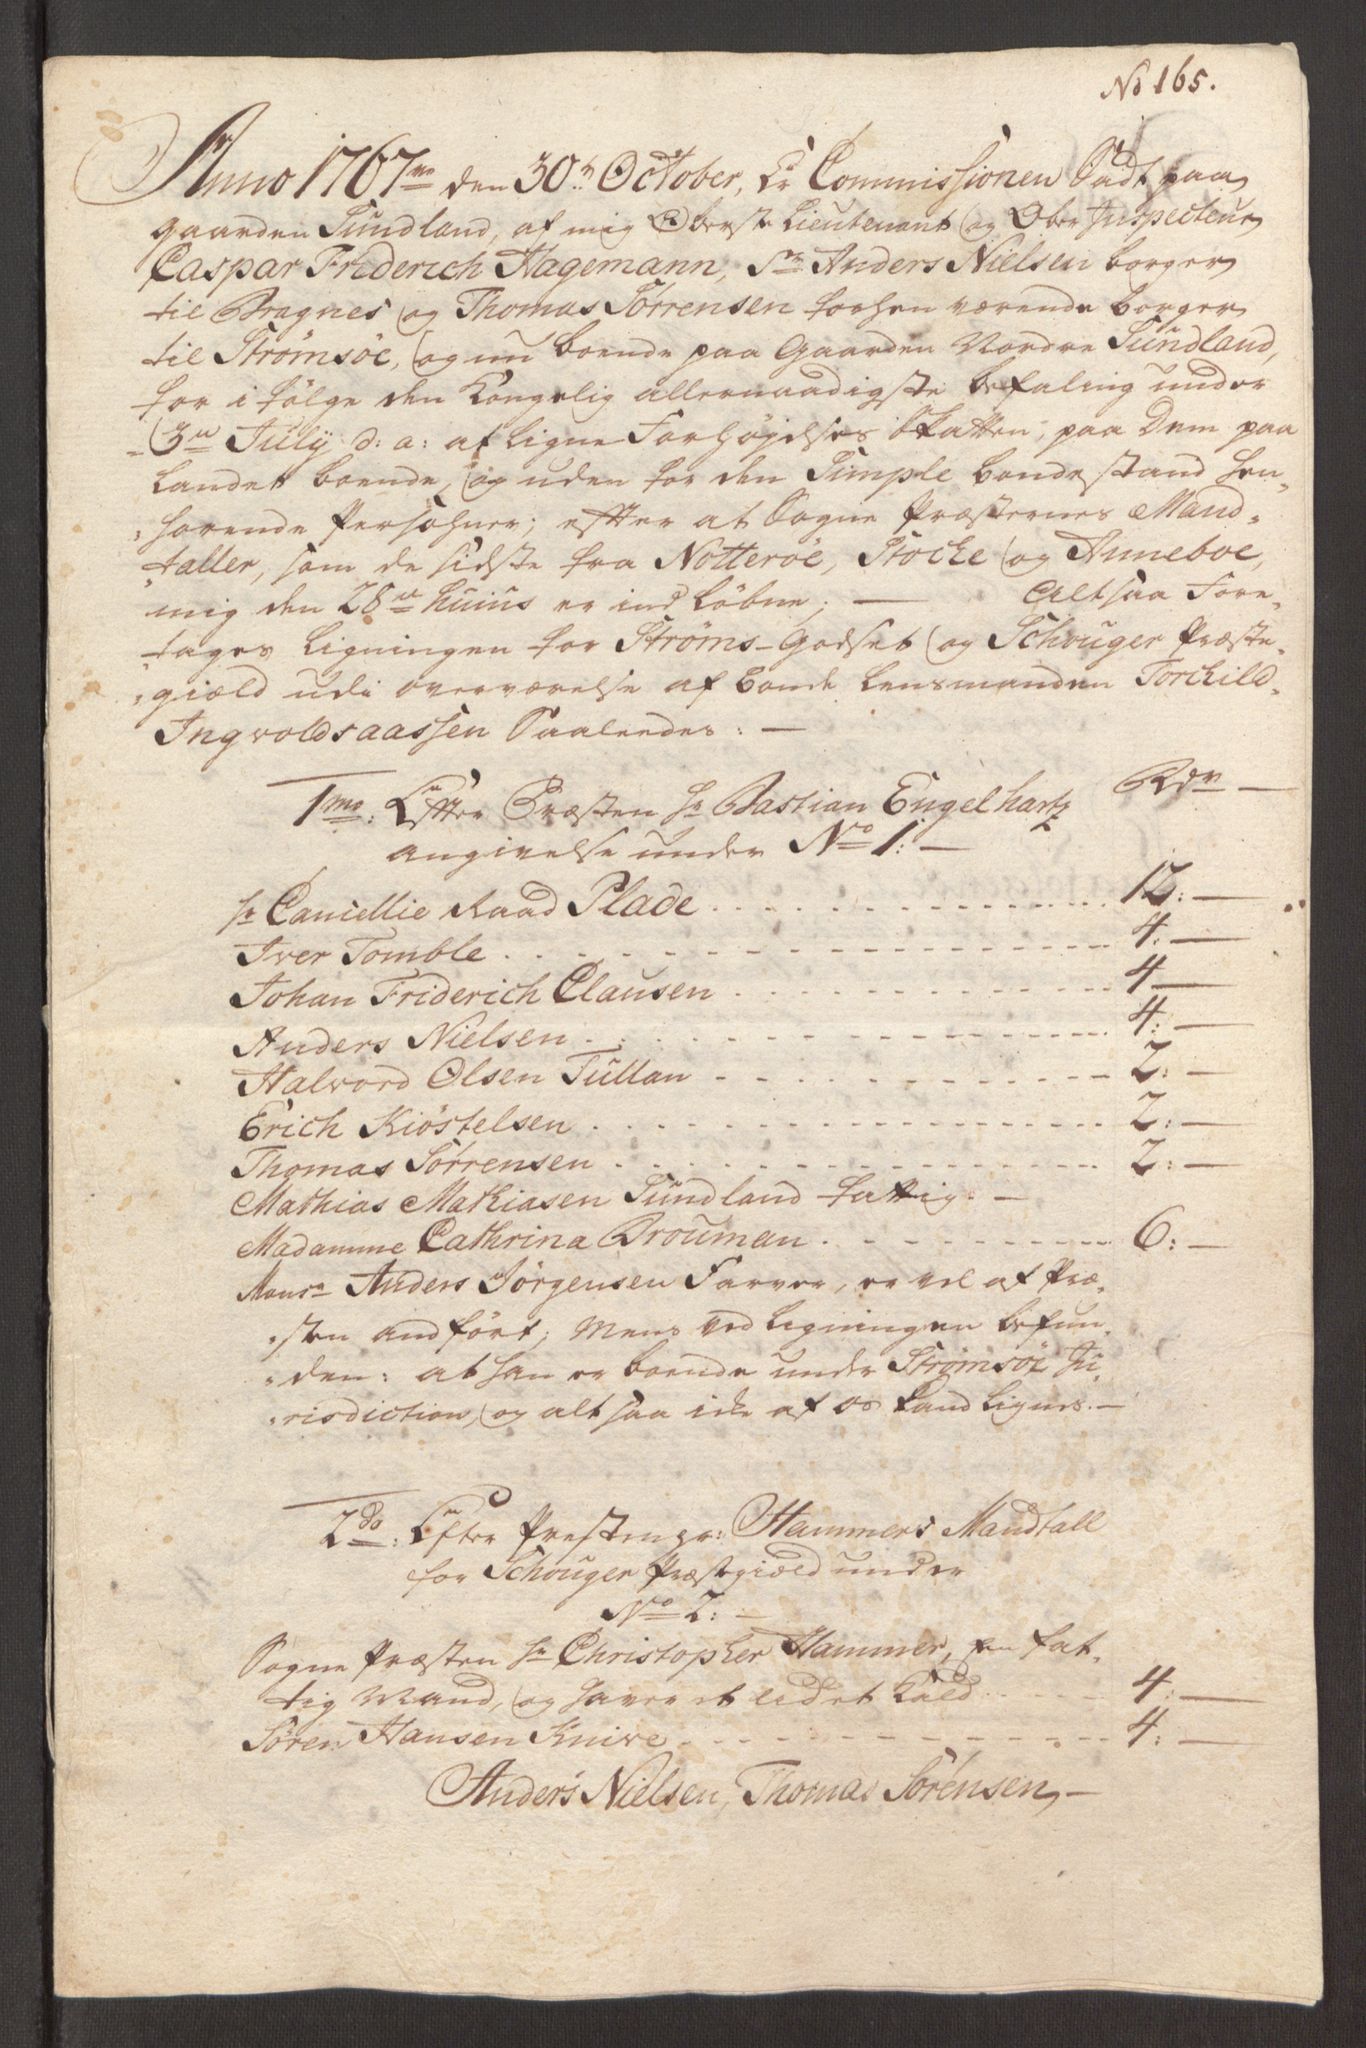 No 165.
Anno 1767me den 30te October, Er Commissionen Sadt paa
gaarden Sundland, af mig Oberste Lieutenant og Ober Inspecteur
Caspar Friderich Hagemann, Sr Anders Nielsen borger
til Bragnes og Thomas Sörrensen forhen værende borger
til Strömsöe, og nu boende paa Gaarden Nordre Sundland,
for i fölge den Kongelig allernaadigste befaling under
3die July d: a: at Ligne Forhöjelses Skatten, paa Dem paa
Landet boende, og uden for den Simple bondestand hen-
hörende Persohner; efter at Sogne Præsternes Mand-
taller, som de sidste fra Notteröe, Stocke og Anneboe,
mig den 28de huius er ind Löbne; — Altsaa Fore-
tages Ligningen for Ströms-Godset og Schouger Præste-
giæld udi overværelse af bonde Lensmanden Torchild
Ingvoldsaassen Saaleedes: —
1mo: Efter Præsten Hr Bastian Engelhartz
Rdr —
angivelse under No 1: —
Hr Cancellie Raad Plade 12: —
Iver Tomble 4: —
Johan Friderich Clausen 4 —
Anders Nielsen 4: —
Halvord Olsen Tullan 2: —
Erich Kiöstelsen 2: —
Thomas Sörrensen 2: —
Mathias Mathiasen Sundland fattig. —
Madamme Cathrina Brouman 6: —
Monsr Anders Jörgensen Farver, er vel af Præ-
sten andfört; Mens ved Ligningen befun-
den: at han er boende under Strömsöe Ju-
risdiction, og altsaa icke af os kand Lignes. —
2do: Efter Presten Hr: Hammers Mandtall
for Schouger Præstegiæld under
No 2: —
Sogne Præsten Hr Christopher Hammer, en fat-
tig Mand, og haver et lidet Kald 4: —
Sören Hansen Knive 4: —
Anders Nielsen, Thomas Sörensen —